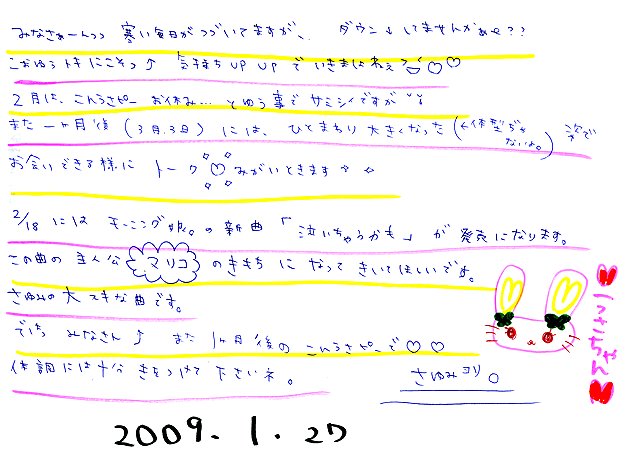 みなさぁーんっっ 寒い毎日がつづいてますが、、ダウン↓してませんかぁぁ??
こおゆうトキにこそっ♪ 気持ちUP UPでいきましょねぇ?♡♡
2月は、こんうさピーお休み… とゆう事でサミシイですが
また一ヶ月後(3月.3日)には、ひとまわり大きくなった(←体型ぢゃないよ。)姿で
お会いできる様に トーク♡みがいときます
2/18 には モーニング娘。の新曲「泣いちゃうかも」が発売になります。
この曲の主人公 マリコ のきもちになってきいてほしいです。
さゆみの大スキな曲です。
でゎ みなさん♪ また1ヶ月後のこんうさピーで♡♡
体調には十分きをつけて下さいネ。
さゆみヨリ。
うさちゃん
2009.1.27